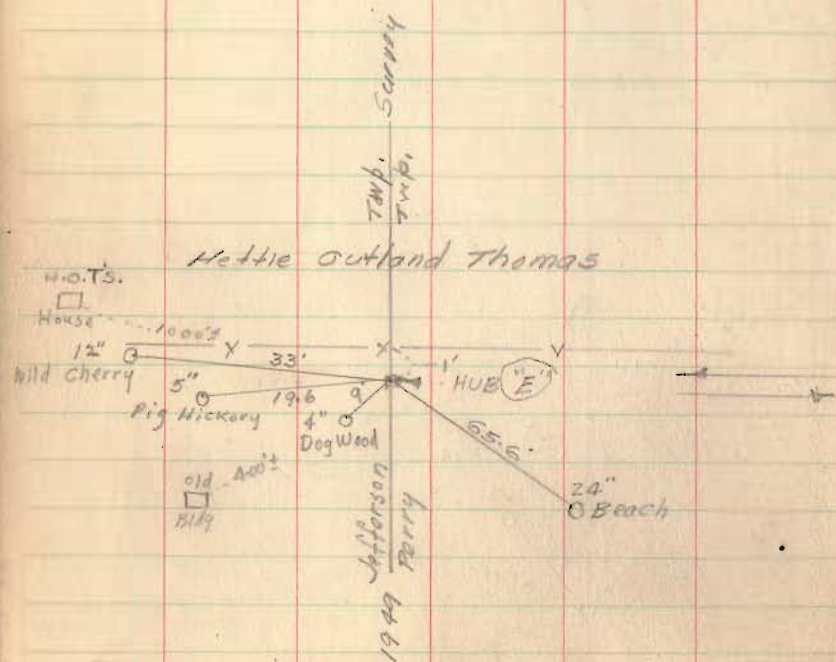 Survey
Twp.
Twp.
Hettie Outland Thomas
H.O.T'S.
House
1000'±
12"
Wild Cherry
33'
1'
HUB "E"
5"
Pig Hickory
19.6
9'
4"
Dog Wood
65.6'
24"
Beach
old
Bldg
400'±
1949 Jefferson
Perry